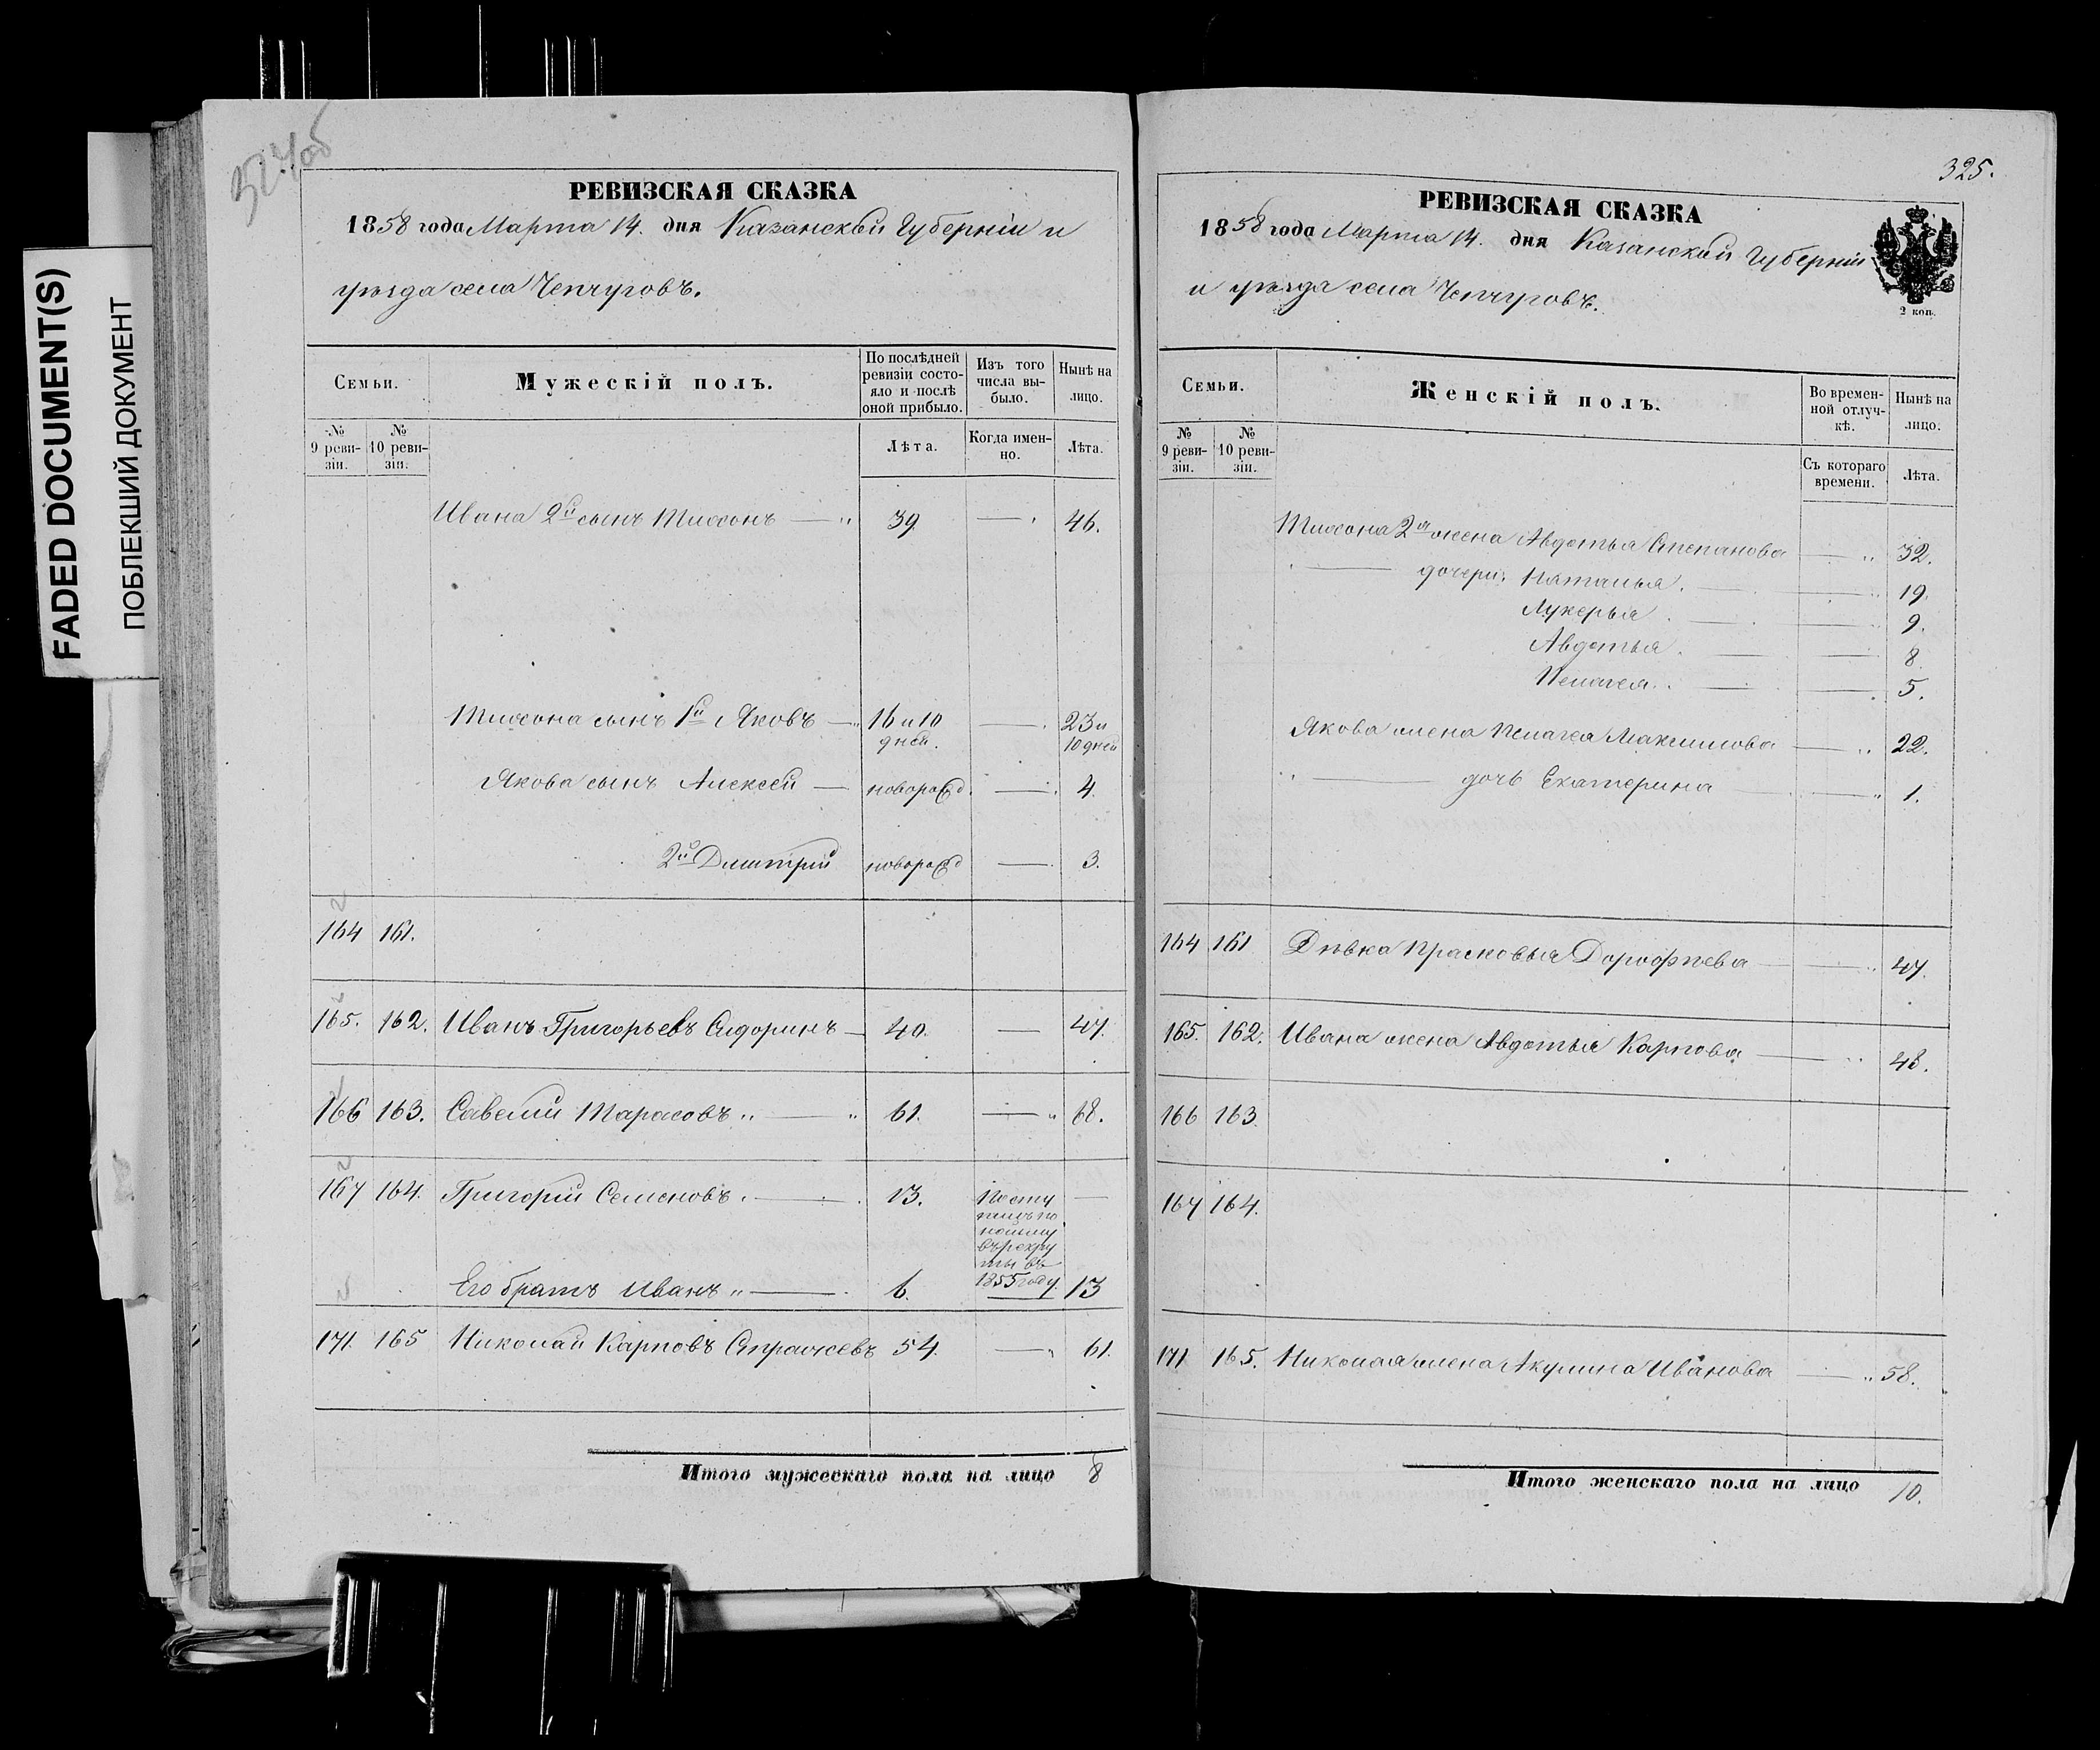 FADED DOCUMENT(S)
ПОБЛЕКШИЙ ДОКУМЕНТ
324об
РЕВИЗСКАЯ СКАЗКА
1858 года Марта 14. дня Казанской Губерніи и
уѣзда села Чепчуговъ.
Семьи.
Мужескій полъ.
По послѣдней ревизіи состояло и послѣ оной прибыло.
Изъ того числа выбыло.
Нынѣ на лицо.
№ 9 ревизіи.
№ 10 ревизіи.
Лѣта.
Когда именно.
Лѣта.
Ивана 2й сынъ Тихонъ — 39 — 46.
Тихона сынъ 1й Яковъ — 16 и 10 дней. — 23 и 10 дней
Якова сынъ Алексей —новорожд. — 4.
2й Дмитрий новорожд — 3.
164 161.
165. 162. Иванъ Григорьевъ Сидоринъ — 40. — 47.
166 163. Савелий Тарасовъ — 61. — 68.
167 164. Григорій Семеновъ. — 13.
Посту
въ рекру
ты въ
1855 году.
Его братъ Иванъ — 6. 13
171. 165 Николай Карповъ 54. — 61.
Итого мужескаго пола на лицо 8
325.
РЕВИЗСКАЯ СКАЗКА
1858 года Марта 14. дня Казанской Губерніи
и уѣзда села Чепчуговъ.
2 коп.
Семьи.
Женскій полъ.
Во временной отлучкѣ.
Нынѣ на лицо.
№ 9 ревизіи.
№ 10 ревизіи.
Съ котораго времени.
Лѣта.
Тихона 2я жена Авдотья Степанова — 32.
— дочери: Наталья. — 19.
Лукерья. — 9.
Авдотья. — 8.
Пелагея. — 5.
Якова жена Пелагея Максимова — 22.
— дочь Екатерина — 1.
164 161 Дѣвка Прасковья Дорофѣева — 47.
165. 162. Ивана жена Авдотья Карпова — 48.
166 163
167 164.
171 165. Николая жена Акулина Иванова — 58.
Итого женскаго пола на лицо 10.